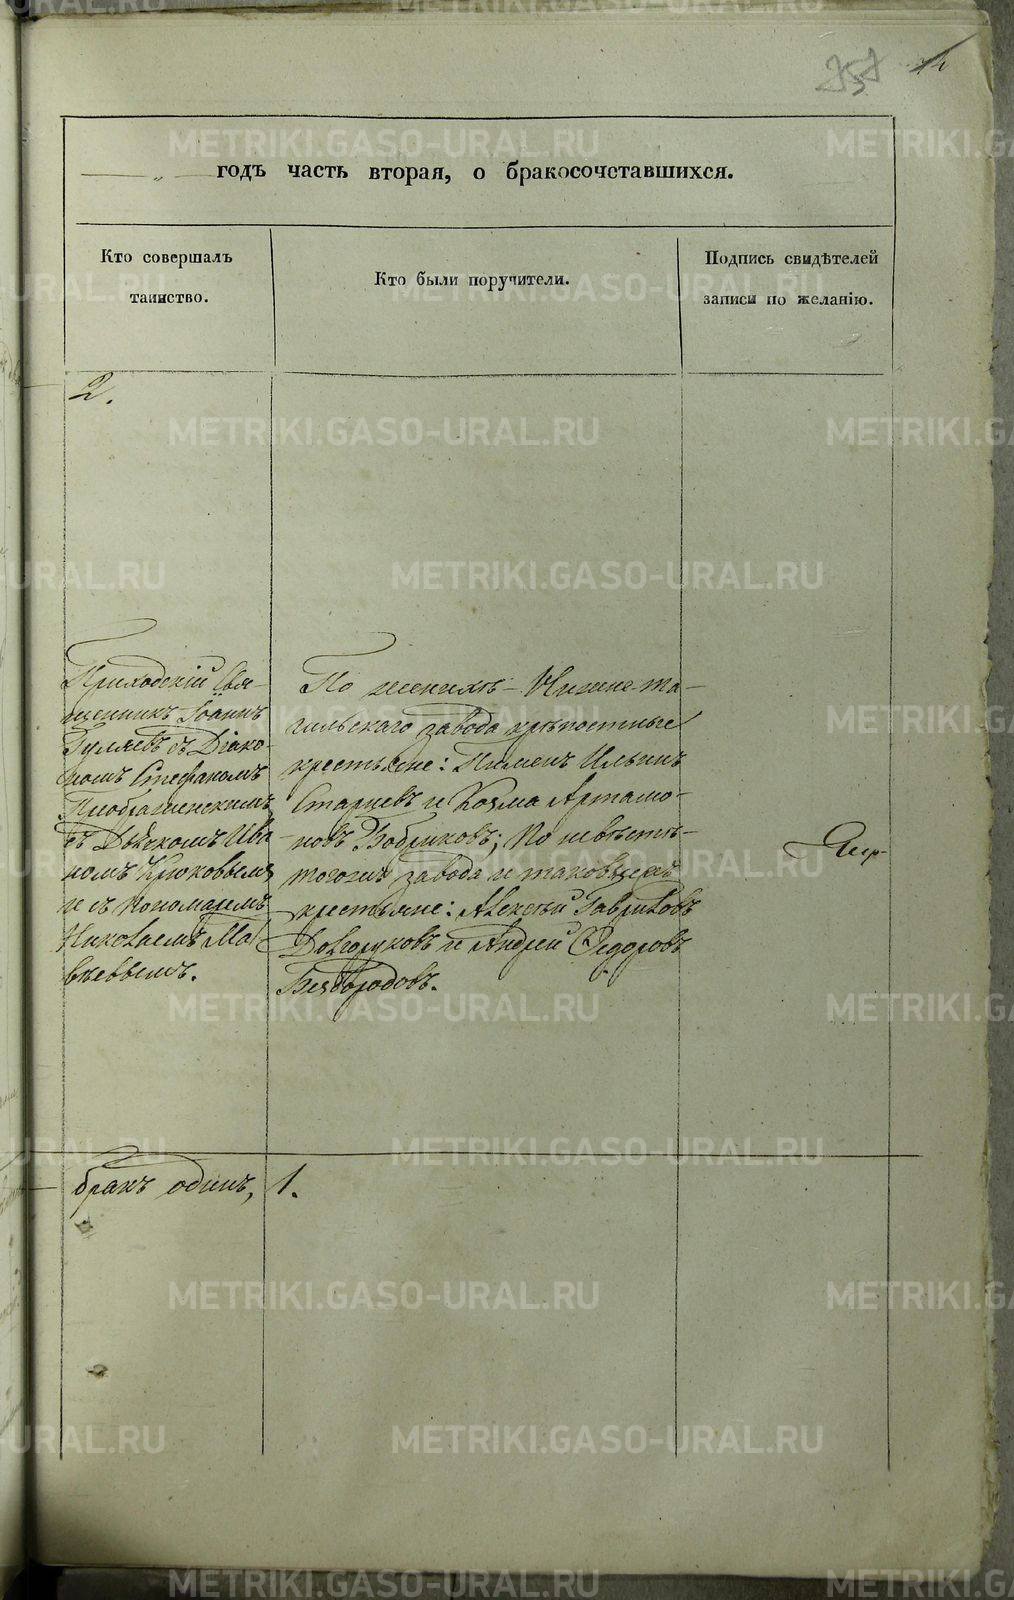 годъ часть вторая, о бракосочетавшихся.
Кто совершалъ
таинство.
Кто были поручители.
Подпись свидѣтелей
записи по желанію.
2.
Приходскій Свя-
щенникъ Іоаннъ
Гуляевъ съ Діако-
номъ Стефаномъ
Преображенскимъ
съ Дьячкомъ Ива
номъ Крюковымъ
и съ Пономаремъ
Николаемъ Мат
вѣевымъ.
По женихѣ - Нижне-та-
гильскаго завода крѣпостные
крестьяне: Пименъ Ильинъ
Старцевъ и Козма Артамо-
новъ Бобриковъ; по невѣстѣ-
тогожъ завода и таковыежъ
крестьяне: Алексѣй Гавриловъ
Долгоруковъ и Андрей Ѳедоровъ
Беzбородовъ.
бракъ одинъ, 1.
METRIKI.GASO-URAL.RU